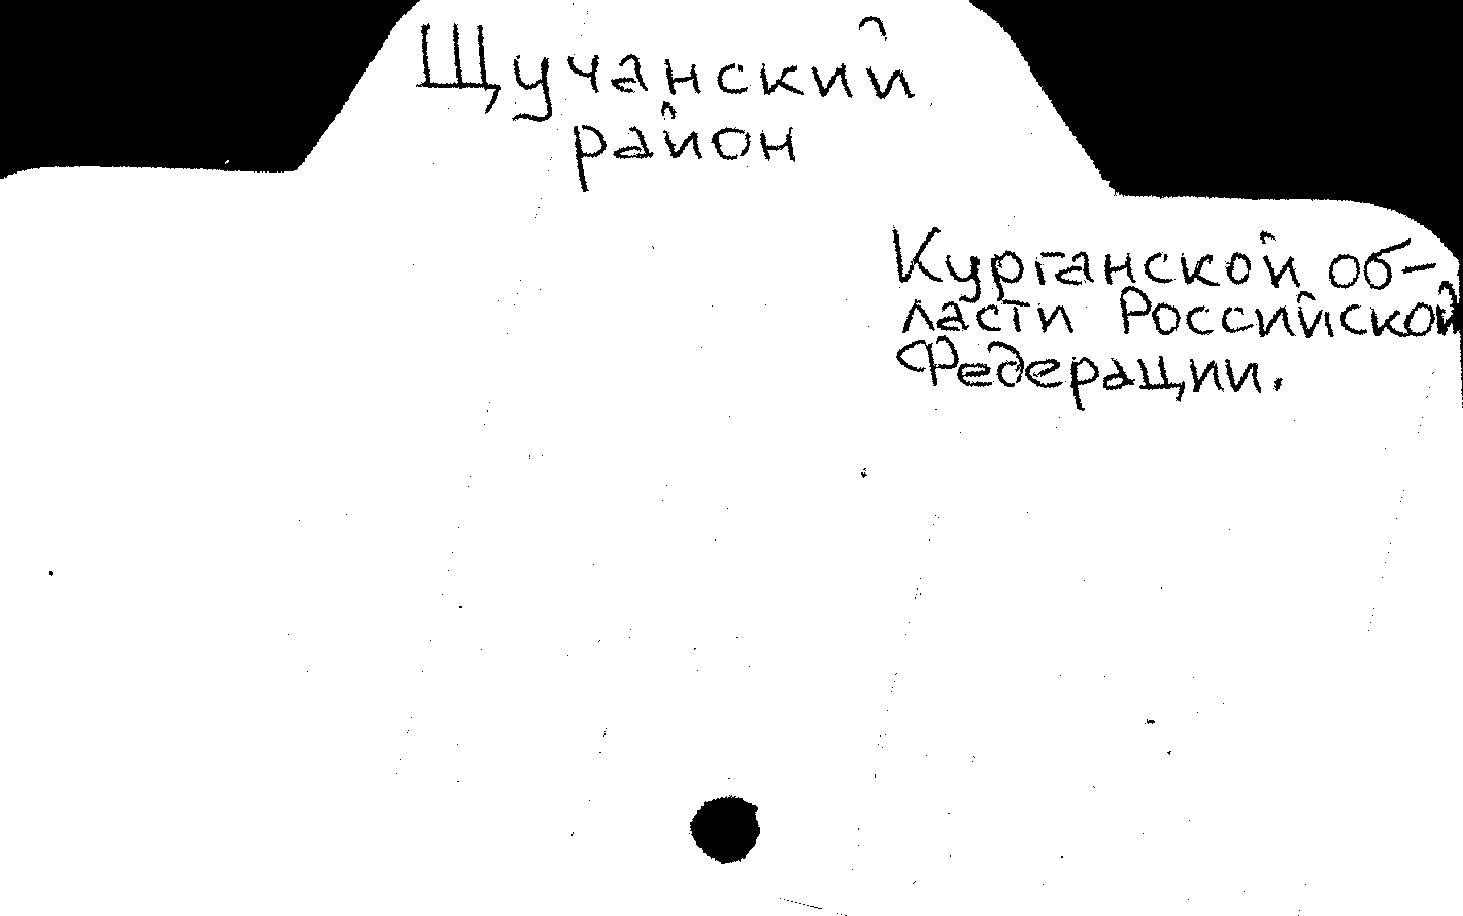 Щучанский
район
Курганской об-
ласти Российской
Федерации.